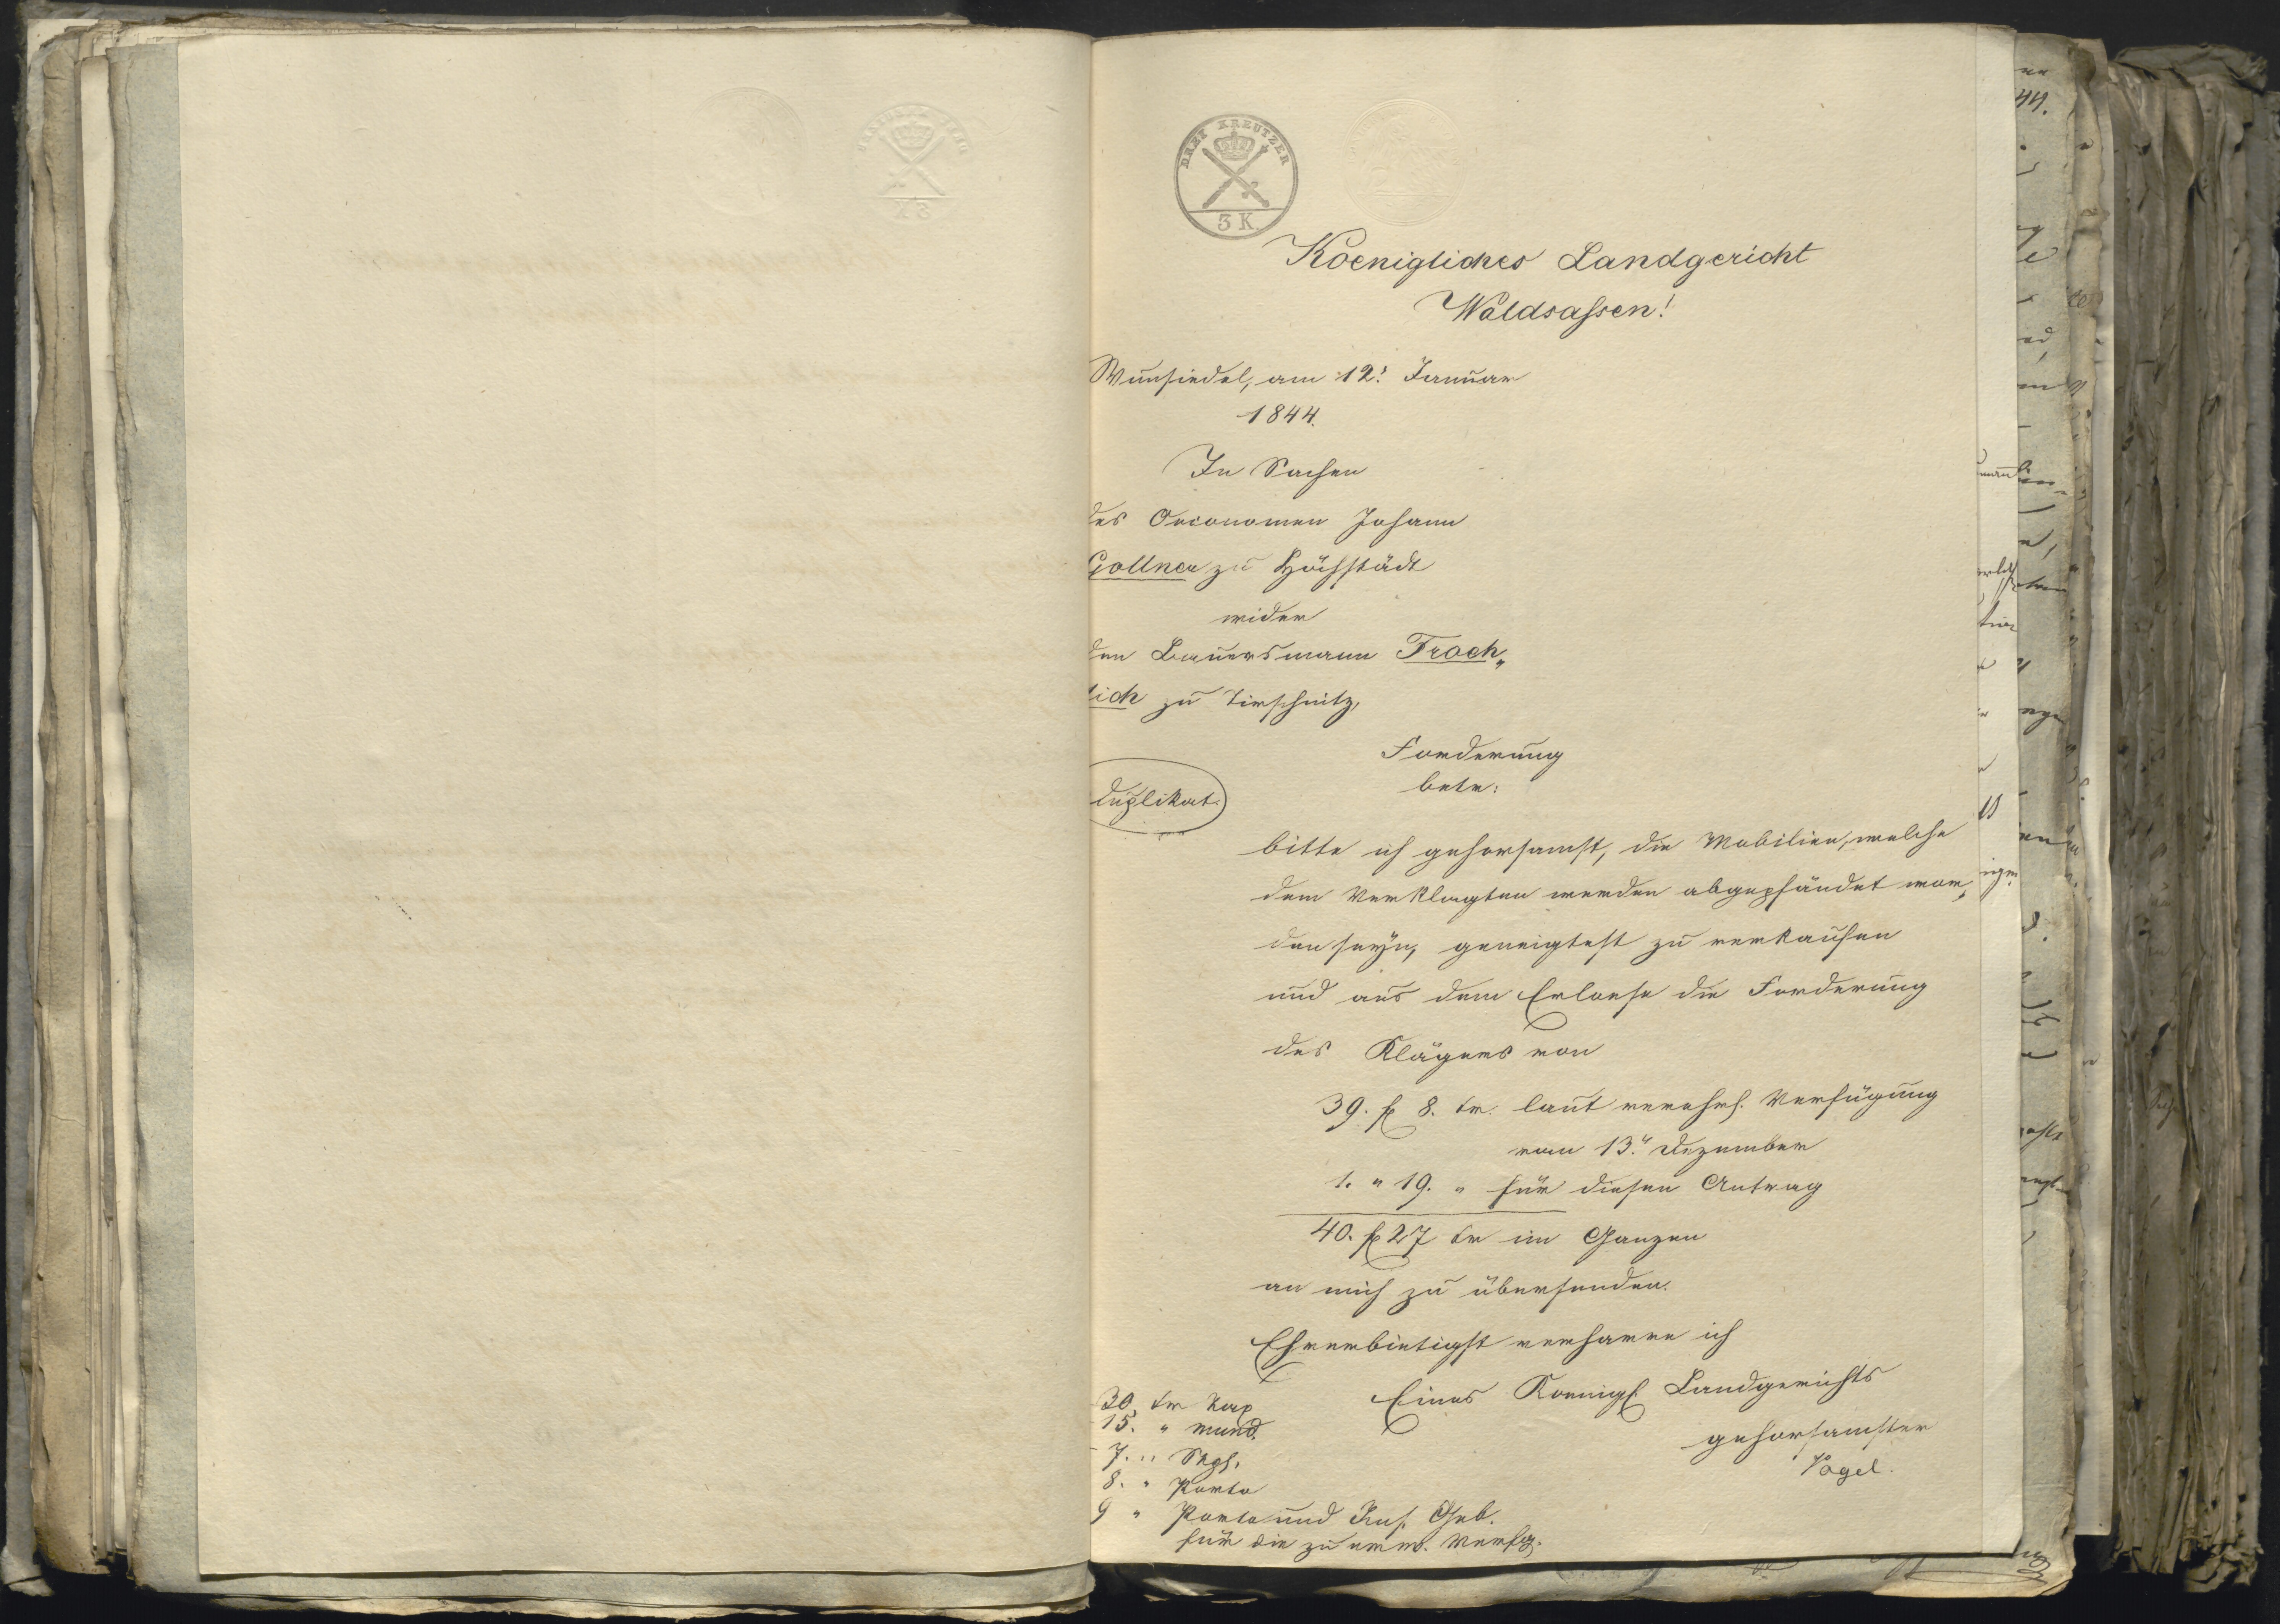 DREI KREUTZER
3 K.
Koenigliches Landgericht
Waldsassen!
Wunsiedel, am 12. Januar
1844.
In Sachen
des Oeconomen Johann
Gollner zu Höchstädt
wider
den Bauersmann Froeh„
lich zu Tirschnitz,
Forderung
betr:
Duplikat.
bitte ich gehorsamst, die Mobilien, welche
dem Verklagten werden abgepfändet wor„
den seyn, geneigtest zu verkaufen
und aus dem Erloese die Forderung
des Klägers von
39. f 8. kr. laut verehrl. Verfügung
vom 13. Dezember
1. " 19. " für diesen Antrag
40. f 27 kr im Ganzen
an mich zu übersenden.
Ehrerbietigst verharre ich
Eines Koenigl. Landgerichts
gehorsamster
Vogel.
30 kr
15. " mund.
7. "
8. " Porto
9 " Porto und Ins. Geb.
für die zu erw. Verfg.